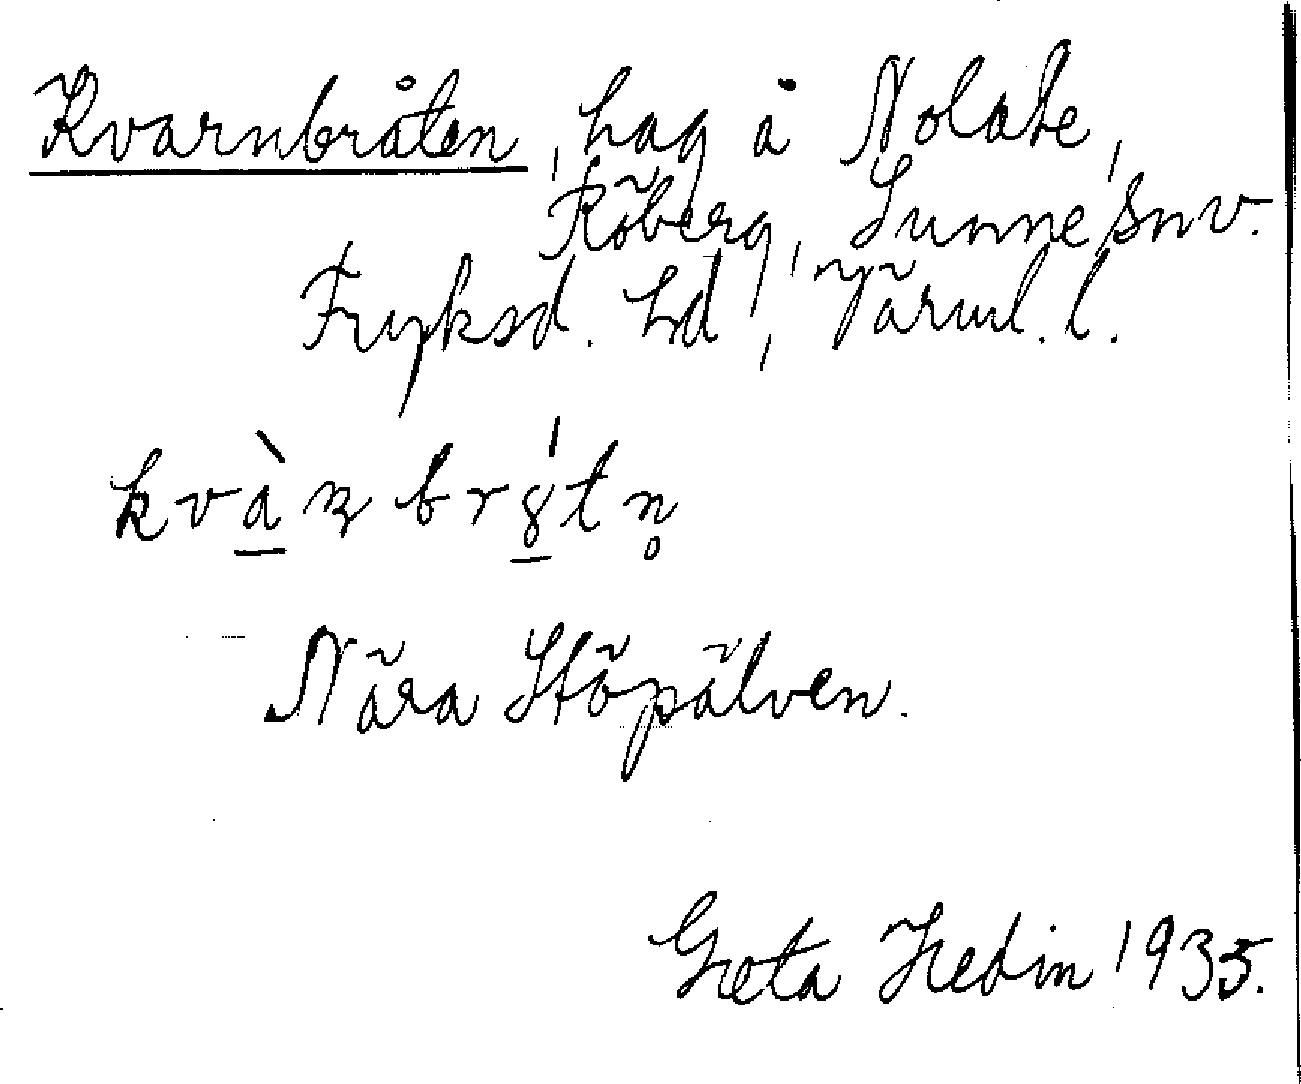 Kvarnbråten, hag å Nolabe,
Röberg, Sunne snv.
Fryksd. hd, Värml. l.
kvànbrýtn̥
Nära Stöpälven.
Greta Hedin 1935.